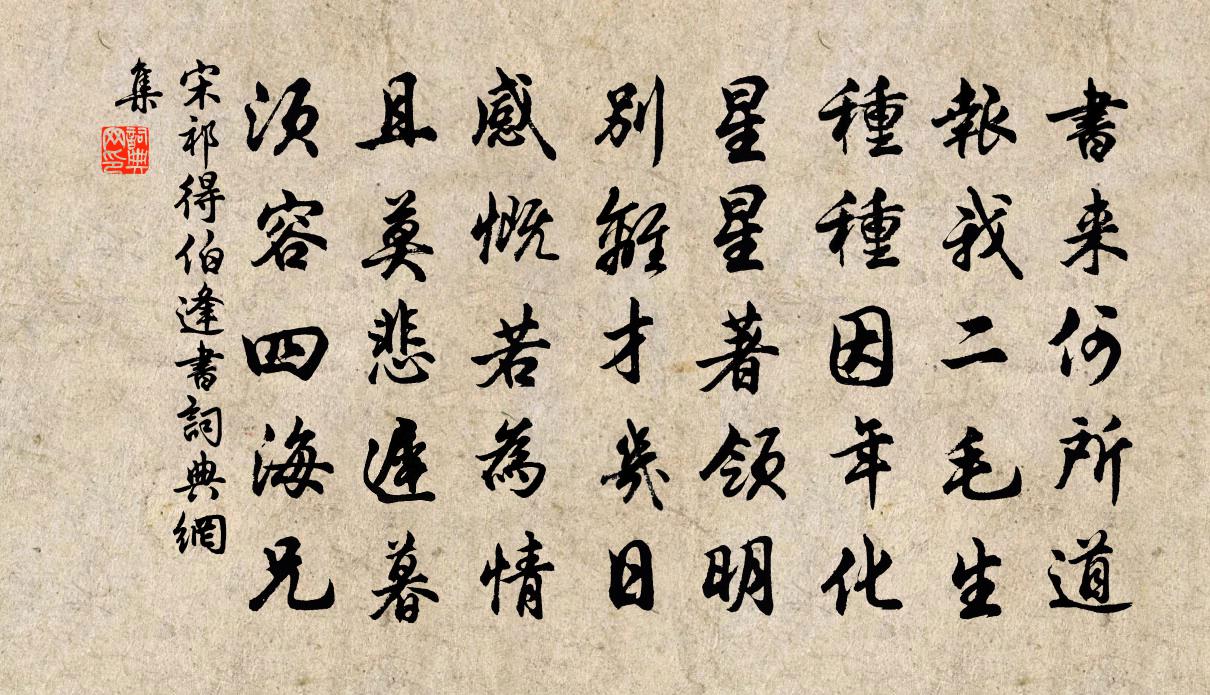 書来何所道
報我二毛生
種種因年化
星星著領明
別離才幾日
感慨若為情
且莫悲遲暮
須容四海兄
宋祁得伯逢書詞典網
集
詞典网印